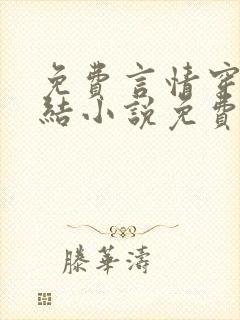 免費言情穿
結小說免費
滕華濤